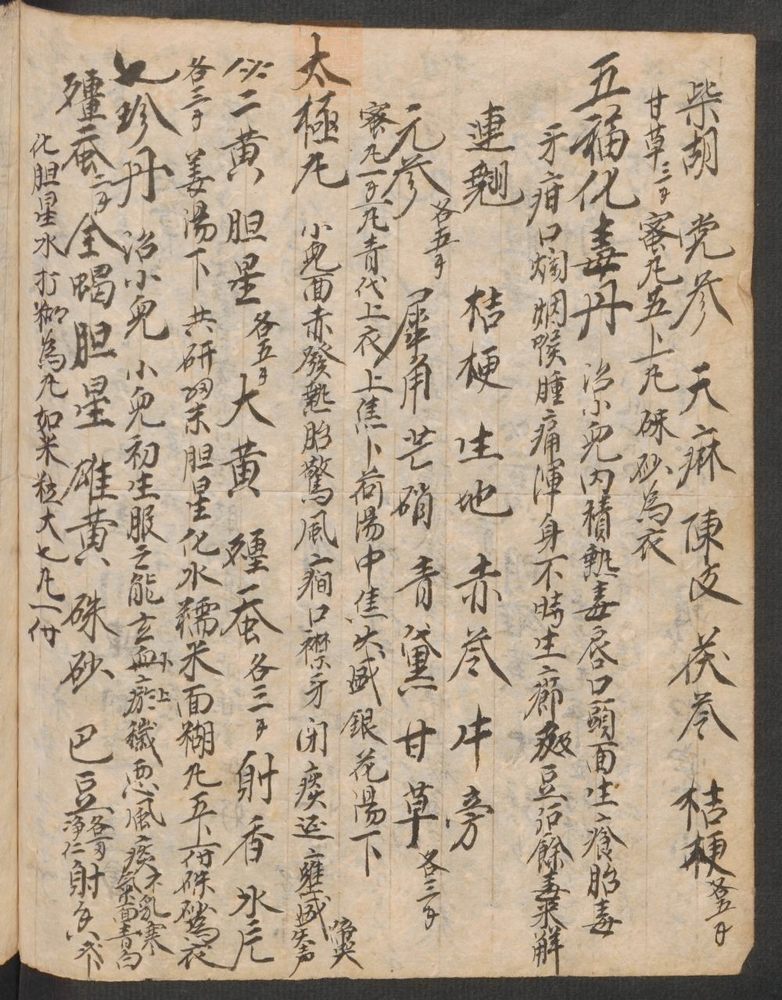 柴胡 党参 天麻 陳皮 茯苓 桔梗 各五千
甘草三千 蜜丸五卜丸硃砂為衣
五福化毒丹 治小兒内積熱毒唇口頭面生瘡胎毒
牙疳口烟喉腫痛渾身不時生癤豆后餘毒未解
連翹 桔梗 生地 赤苓 牛旁
元参 各五千 犀角 芒硝 青黛 甘草 各三千
蜜丸一千丸青代上衣上焦卜荷湯中焦火盛銀花湯下
太極丸 小兒面赤發熱胎驚風癇口襟牙闭痰涎壅盛失声
二黄 胆星 各五千 大黄 殭蚕 各三千 射香 氷
各三千 姜湯下 共研末胆星化水糯米面糊丸五卜硃砂為衣
七珍丹 治小兒 小兒初生服之能去血瘀穢悪風痰不乳寒氣面青白
殭蚕 二千 全蝎 胆星 雄黄 硃砂 巴豆 净仁 射
化胆星水打糊為丸如米粒大七丸一付